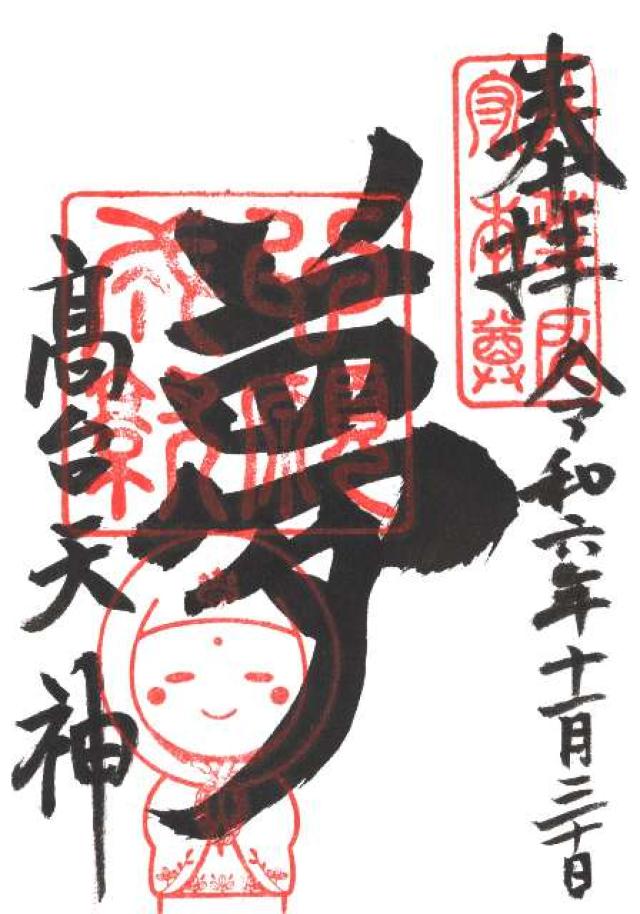 奉拝 令和六年十一月三十日
守本尊
夢
髙台天神